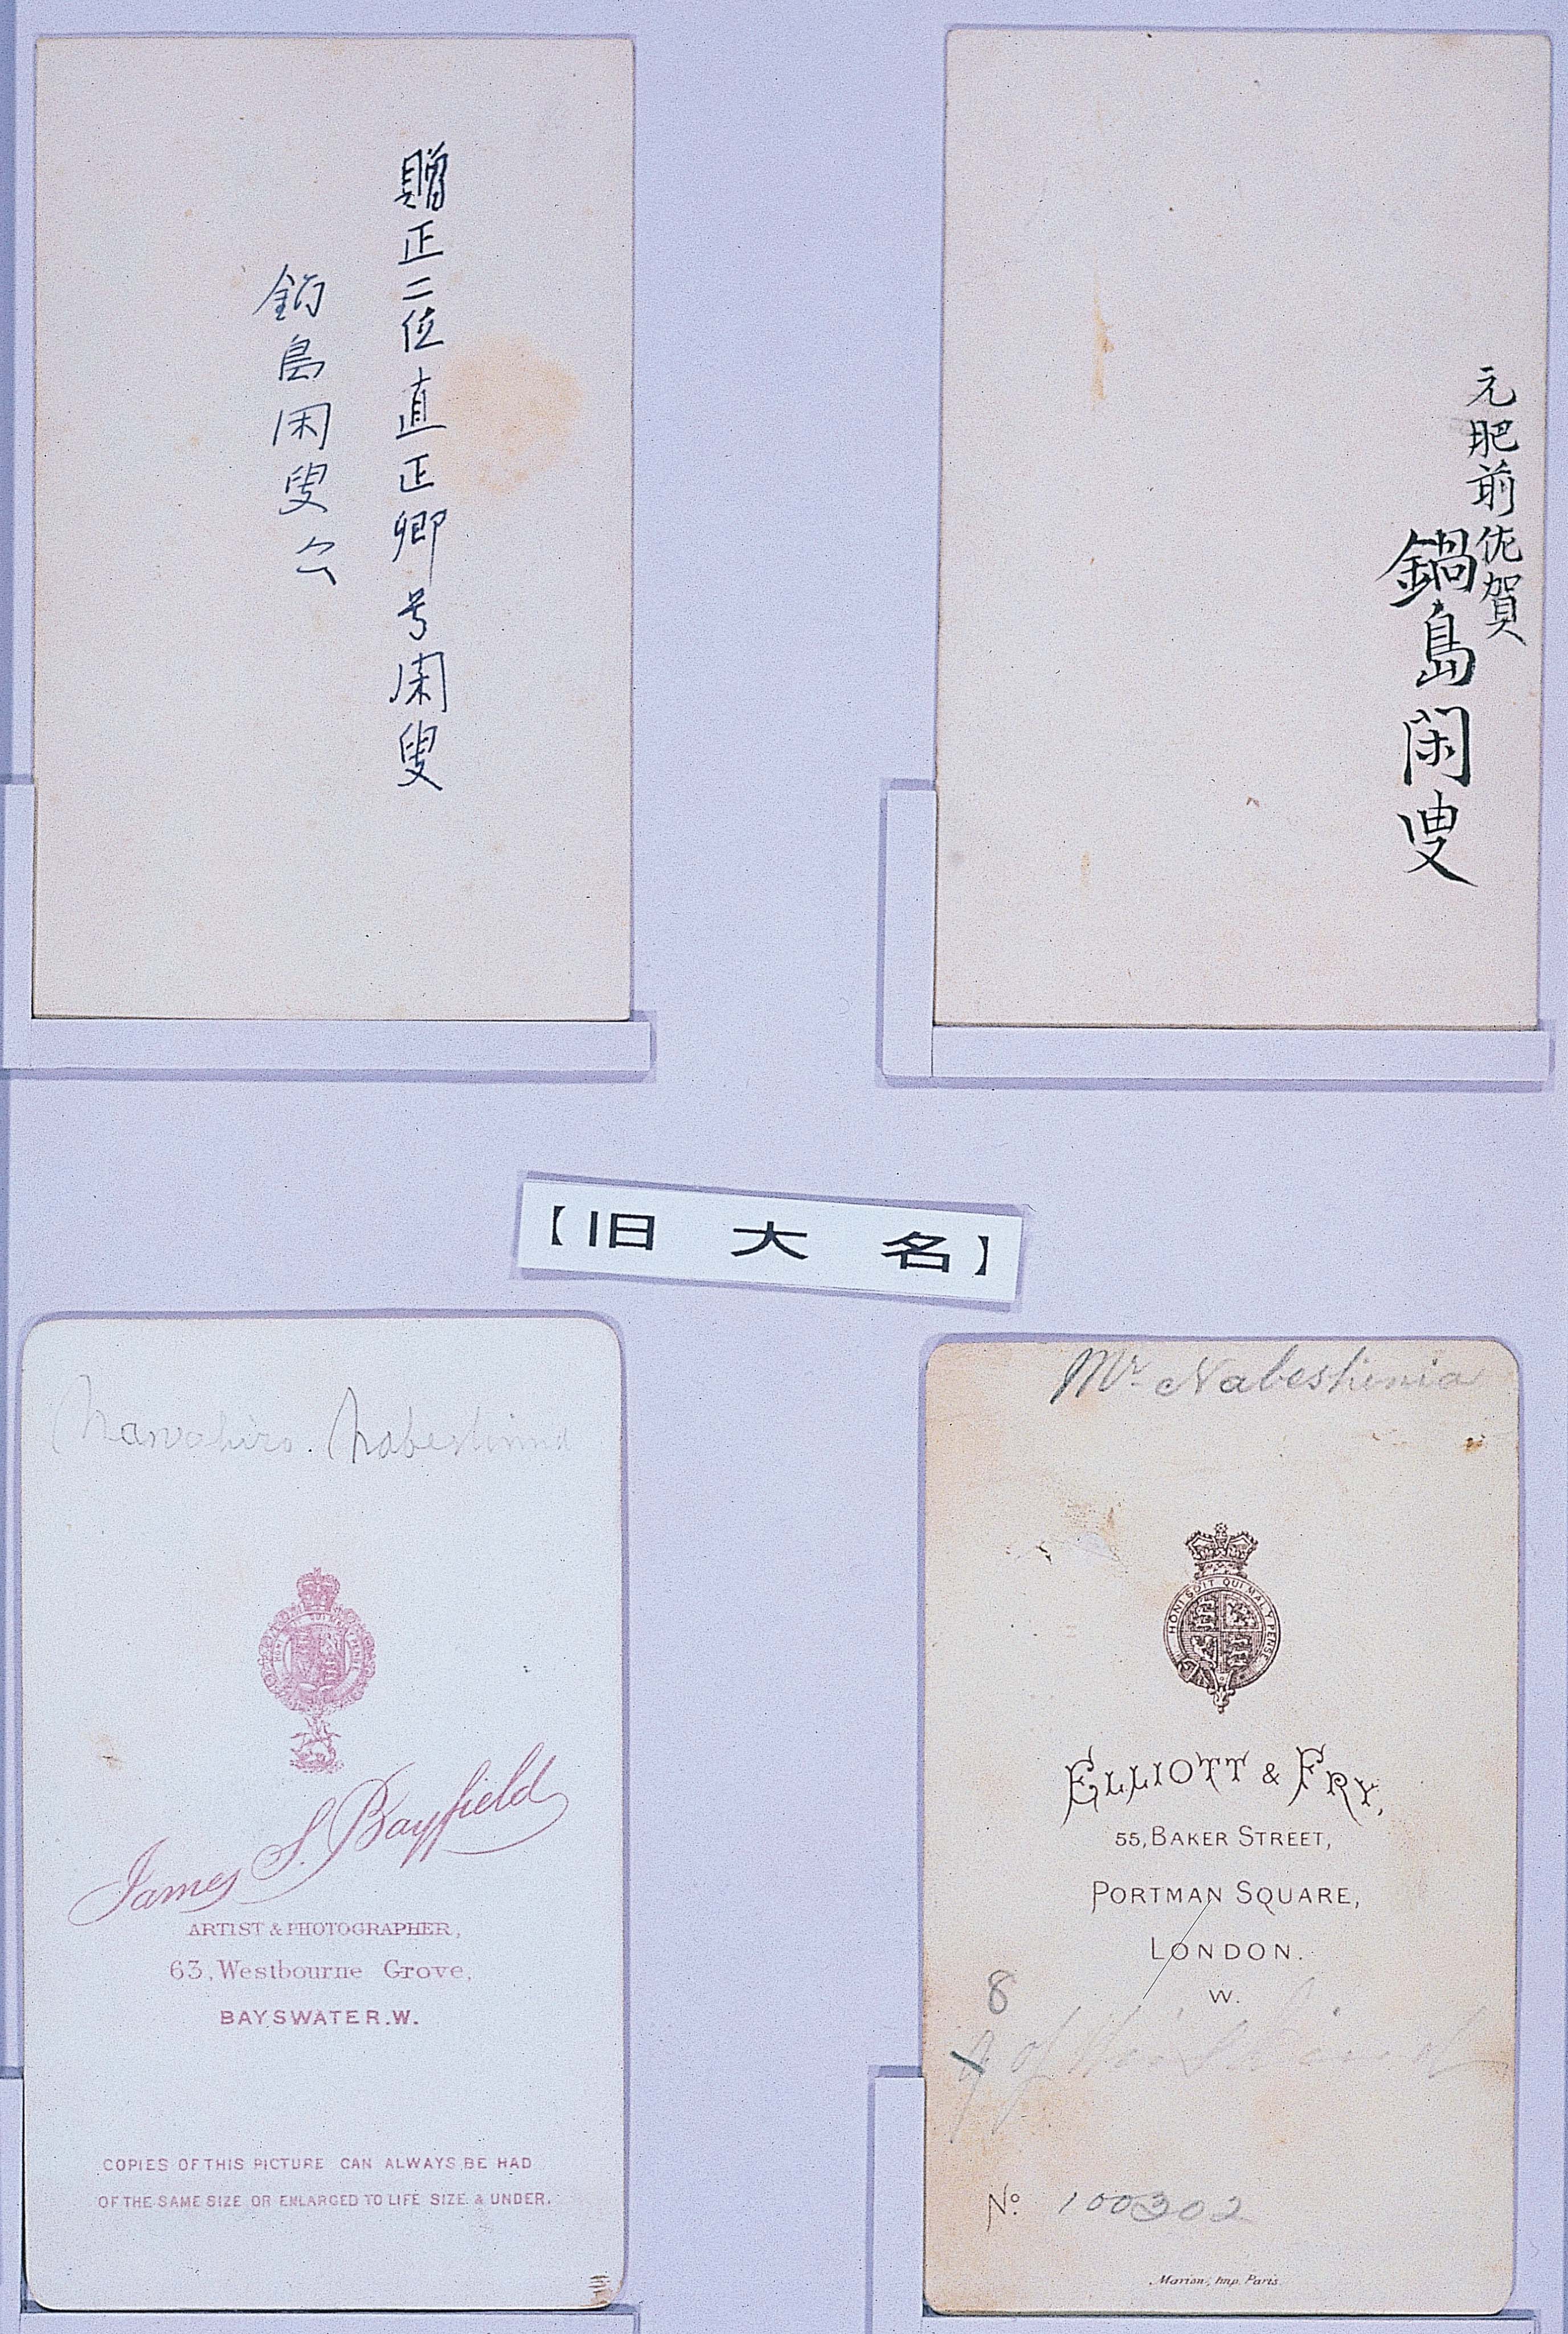 贈正二位直正卿号閑叟
鍋島閑叟公
元肥前佐賀
鍋島閑叟
【旧大名】
Nawohiro. Nabeshima
James S. Bayfield
ARTIST & PHOTOGRAPHER,
63, Westbourne Grove,
BAYSWATER. W.
COPIES OF THIS PICTURE CAN ALWAYS BE HAD
OF THE SAME SIZE OR ENLARGED TO LIFE SIZE & UNDER.
Mr Nabeshima
HONI SOIT QUI MAL Y PENSE
ELLIOTT & FRY,
55, BAKER STREET,
PORTMAN SQUARE,
LONDON.
W.
8
No. 100302
Marion, Imp. Paris.